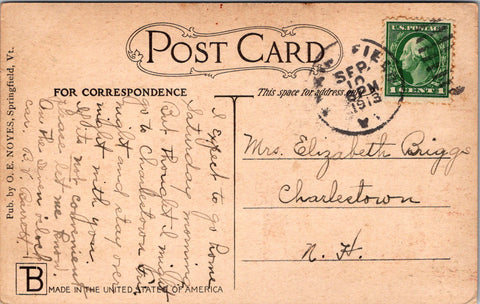 POST CARD
FOR CORRESPONDENCE
This space for address
U.S. POSTAGE
1 CENT 1
SEP
8 PM
1913
Pub. by O. E. NOYES, Springfield, Vt.
I expect to go home
Saturday morning
But thought I might
go to Charlestown to
night and stay over
night with you
If its not convenient
please let me know.
on the seven o'clock
car. B. F. Barrett
Mrs. Elizabeth Briggs
Charlestown
N. H.
TB
MADE IN THE UNITED STATES OF AMERICA